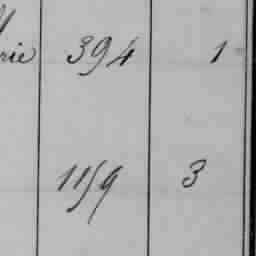 rie 394 1
1159 3